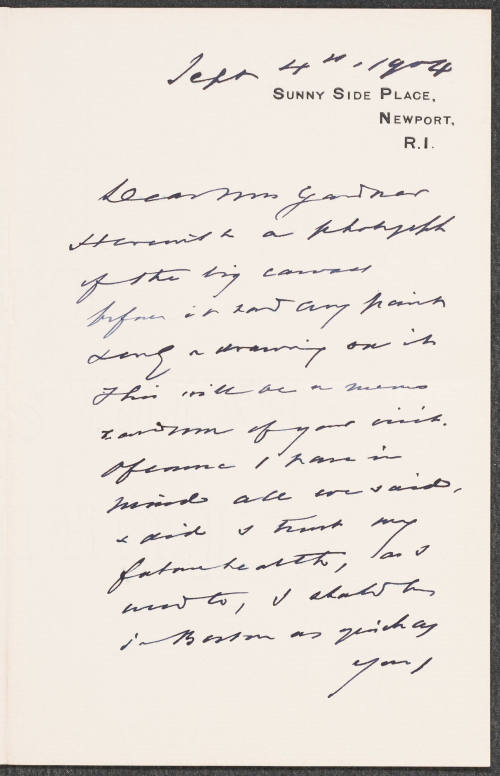 Sept 4th, 1904
SUNNY SIDE PLACE,
NEWPORT,
R.I.
Dear Mrs Gardner
Herewith a photograph
of the big canvas
before it had any paint
& only a drawing on it
This will be a memo
randum of your visit.
Of course I have in
mind all we said,
& did I trust my
future health, as I
used to, I should be
in Boston as quick as
you,